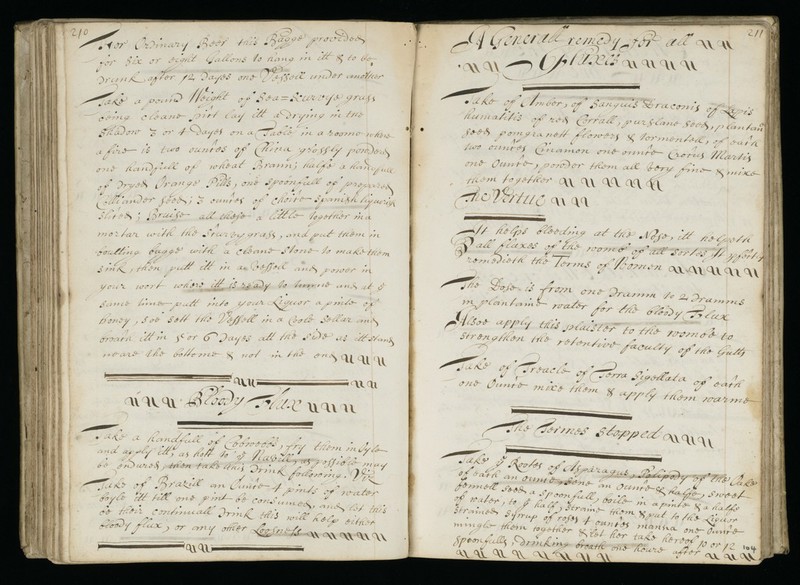 210
For Ordinary Beer this Bagge provided
for six or eight Gallons to hang in itt & to be
Drunk after 12 Dayes one Vessell under another
Take a pound Weight of Sea=Scurvye grass
being cleane pict lay itt a drying in the
shadow 3 or 4 dayes on a Table in a roome where
a fire is two ounces of China grossly powdered
one handfull of wheat Brann; halfe a handfull
of Dryed Orange Pills, one spoonfull of prepared
Colliander seed; 3 ounces of choice Spanish liquorish
sliced; Bruise all these a little together in a
mortar with the scurvy grass, and put them in
boulting bagge with a cleane stone to make them
sink, then putt itt in a Vessell and power in
your wort where itt is ready to turne and at ye
same time putt into your Liquor a pinte of
Honey, soe sett the Vessell in a Coole Sellar and
broach itt in 5 or 6 Dayes att the side as itt stands
neare the bottome & not in the end
Bloody Flux
Take a handfull of Cobwebs, fry them in Oyle
and apply itt, as hott to ye Navell, as possible may
be endured then take this Drink following. Viz
Take of Brazill an Ounce 4 pints of water
boyle itt till one pint be consumed, and let this
be their continuall Drink this will help either
bloody flux, or any other Loosness
211
A Generall remedy for all
Fluxes
Take of Amber, of Sanguis Draconis of Lapis
humatitis of red Corrall, purslane seed, plantain
seed pomgranett flowers & Tormentell, of each
two ounces Cinamon one ounce Crocus Martis
one Ounce, powder them all very fine & mixe
them together
The Vertue
It helps bleeding at the Nose, itt helpeth
all fluxes of the womb of all sorts, It
remedieth the Terms of Women
The Dose is from one Dramm to 2 Dramms
in plantaine water for the bloody Flux
Alsoe apply this plaister to the wombe to
strengthen the retentive faculty of the Gutts
Take of Treacle of Terra Sigellata of each
one Ounce mixe them & apply them warme
The Termes stopped
Take ye Rootes of Asparague, Polipody of the Oake
of each an ounce, Sene an Ounce & halfe, sweet
fennell seed a spoonfull, boile in a pinte & a halfe
of water, to ye half, straine them & put to the Liquor
strained Syrup of roses 4 ounces manna one Ounce
mingle them together & let her take hereof 10 or 12
spoonfulls, drinking broath one houre after
104